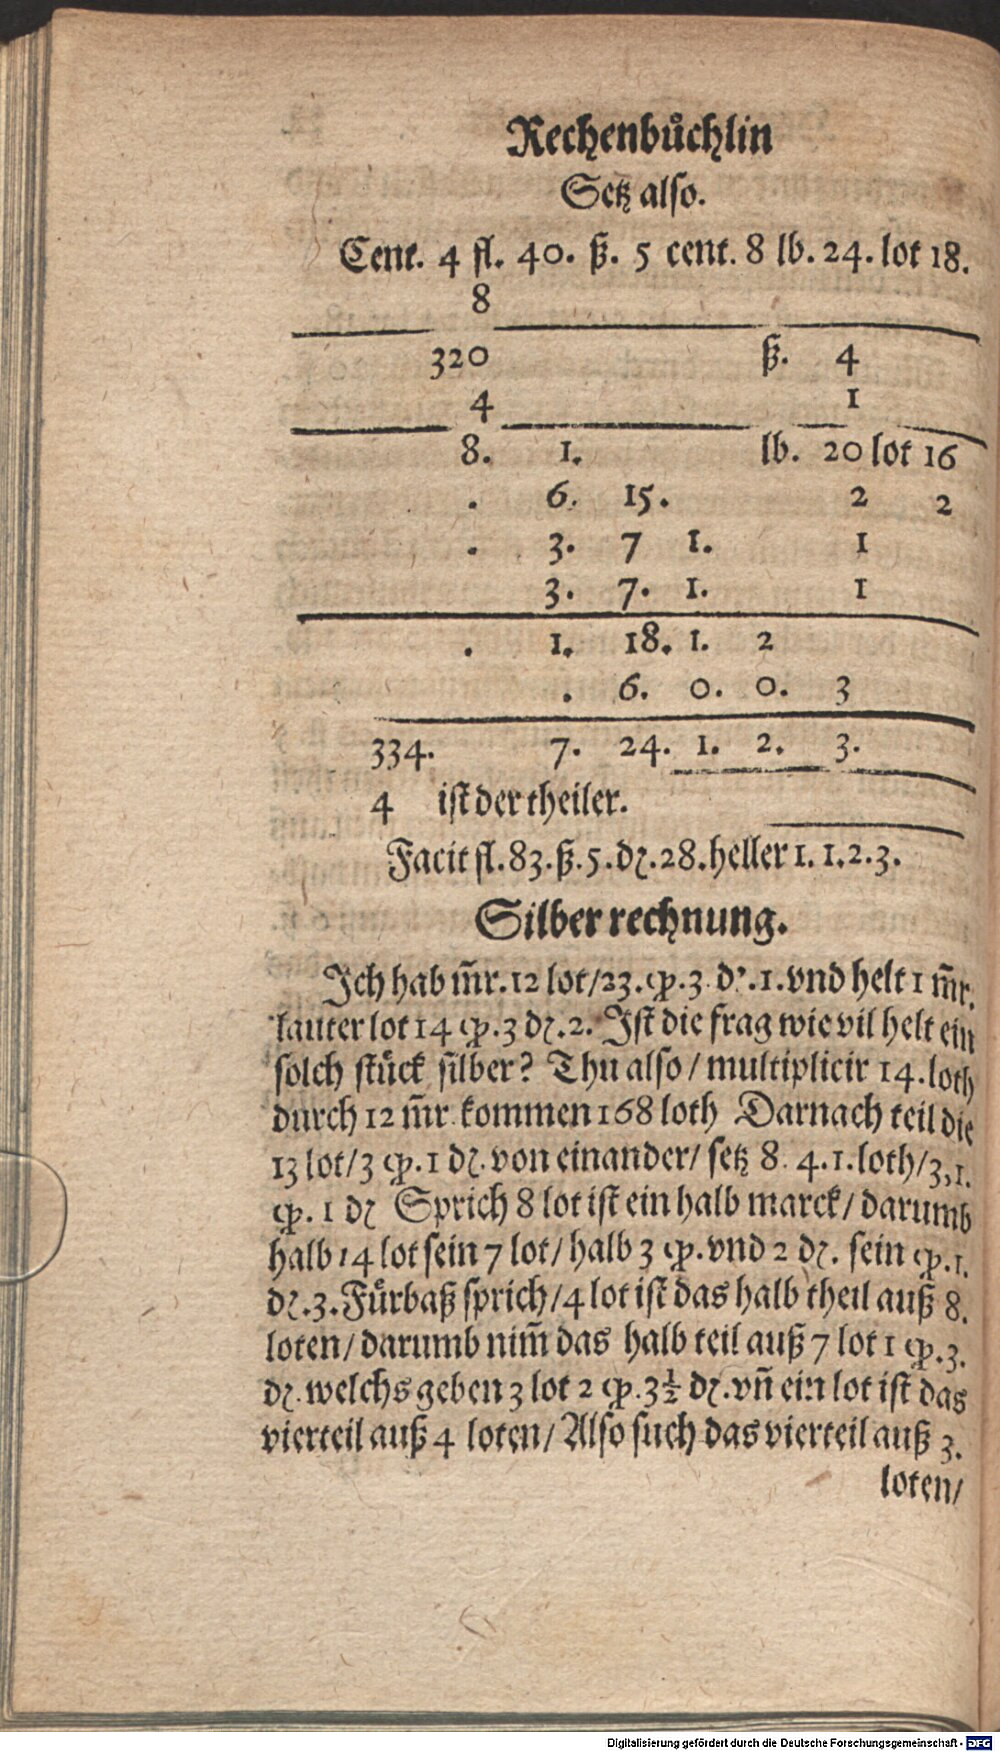 Rechenbuͤchlin
Setz also.
Cent. 4 fl. 40. ß. 5 cent. 8 lb. 24. lot 18.
8
320 ß. 4
4 1
8. 1. lb. 20 lot 16
. 6. 15. 2 2
. 3. 7 1. 1
3. 7. 1. 1
. 1. 18. 1. 2
. 6. 0. 0. 3
334. 7. 24. 1. 2. 3.
4 ist der theiler.
Facit fl. 83. ß. 5. dɀ. 28. heller 1. 1. 2. 3.
Silber rechnung.
Ich hab m̄r. 12 lot/23. qꝛ. 3 d'. 1. vnd helt 1 m̄r.
lauter lot 14 qꝛ. 3 dɀ. 2. Ist die frag wie vil helt ein
solch stuͤck silber? Thu also/ multiplicir 14. loth
durch 12 m̄r kommen 168 loth Darnach teil die
13 lot/3 qꝛ. 1 dɀ. von einander/ setz 8. 4. 1. loth/3,1.
qꝛ. 1 dɀ Sprich 8 lot ist ein halb marck/ darumb
halb 14 lot sein 7 lot/ halb 3 qꝛ. vnd 2 dɀ. sein qꝛ. 1.
dɀ. 3. Fuͤrbaß sprich/4 lot ist das halb theil auß 8.
loten/ darumb nim̄ das halb teil auß 7 lot 1 qꝛ. 3.
dɀ. welchs geben 3 lot 2 qꝛ. 3½ dɀ. vn̄ ein lot ist das
vierteil auß 4 loten/ Also such das vierteil auß 3.
loten/
Digitalisierung gefördert durch die Deutsche Forschungsgemeinschaft - DFG